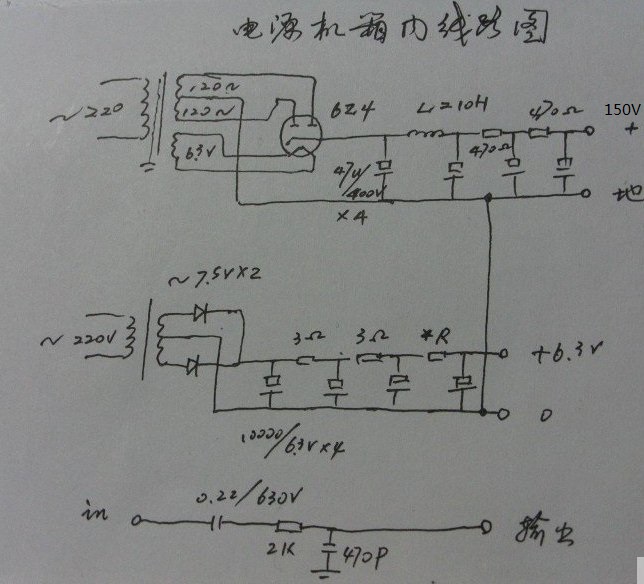 电源机箱内线路图
120~
120~
~220
6.3V
6Z4
L=10H
470Ω
470Ω
150V
+
47u/
400V
×4
地
~7.5V×2
~220V
3Ω
3Ω
*R
+6.3V
0
10000/6.3V×4
in
0.22/630V
2K
470P
输出